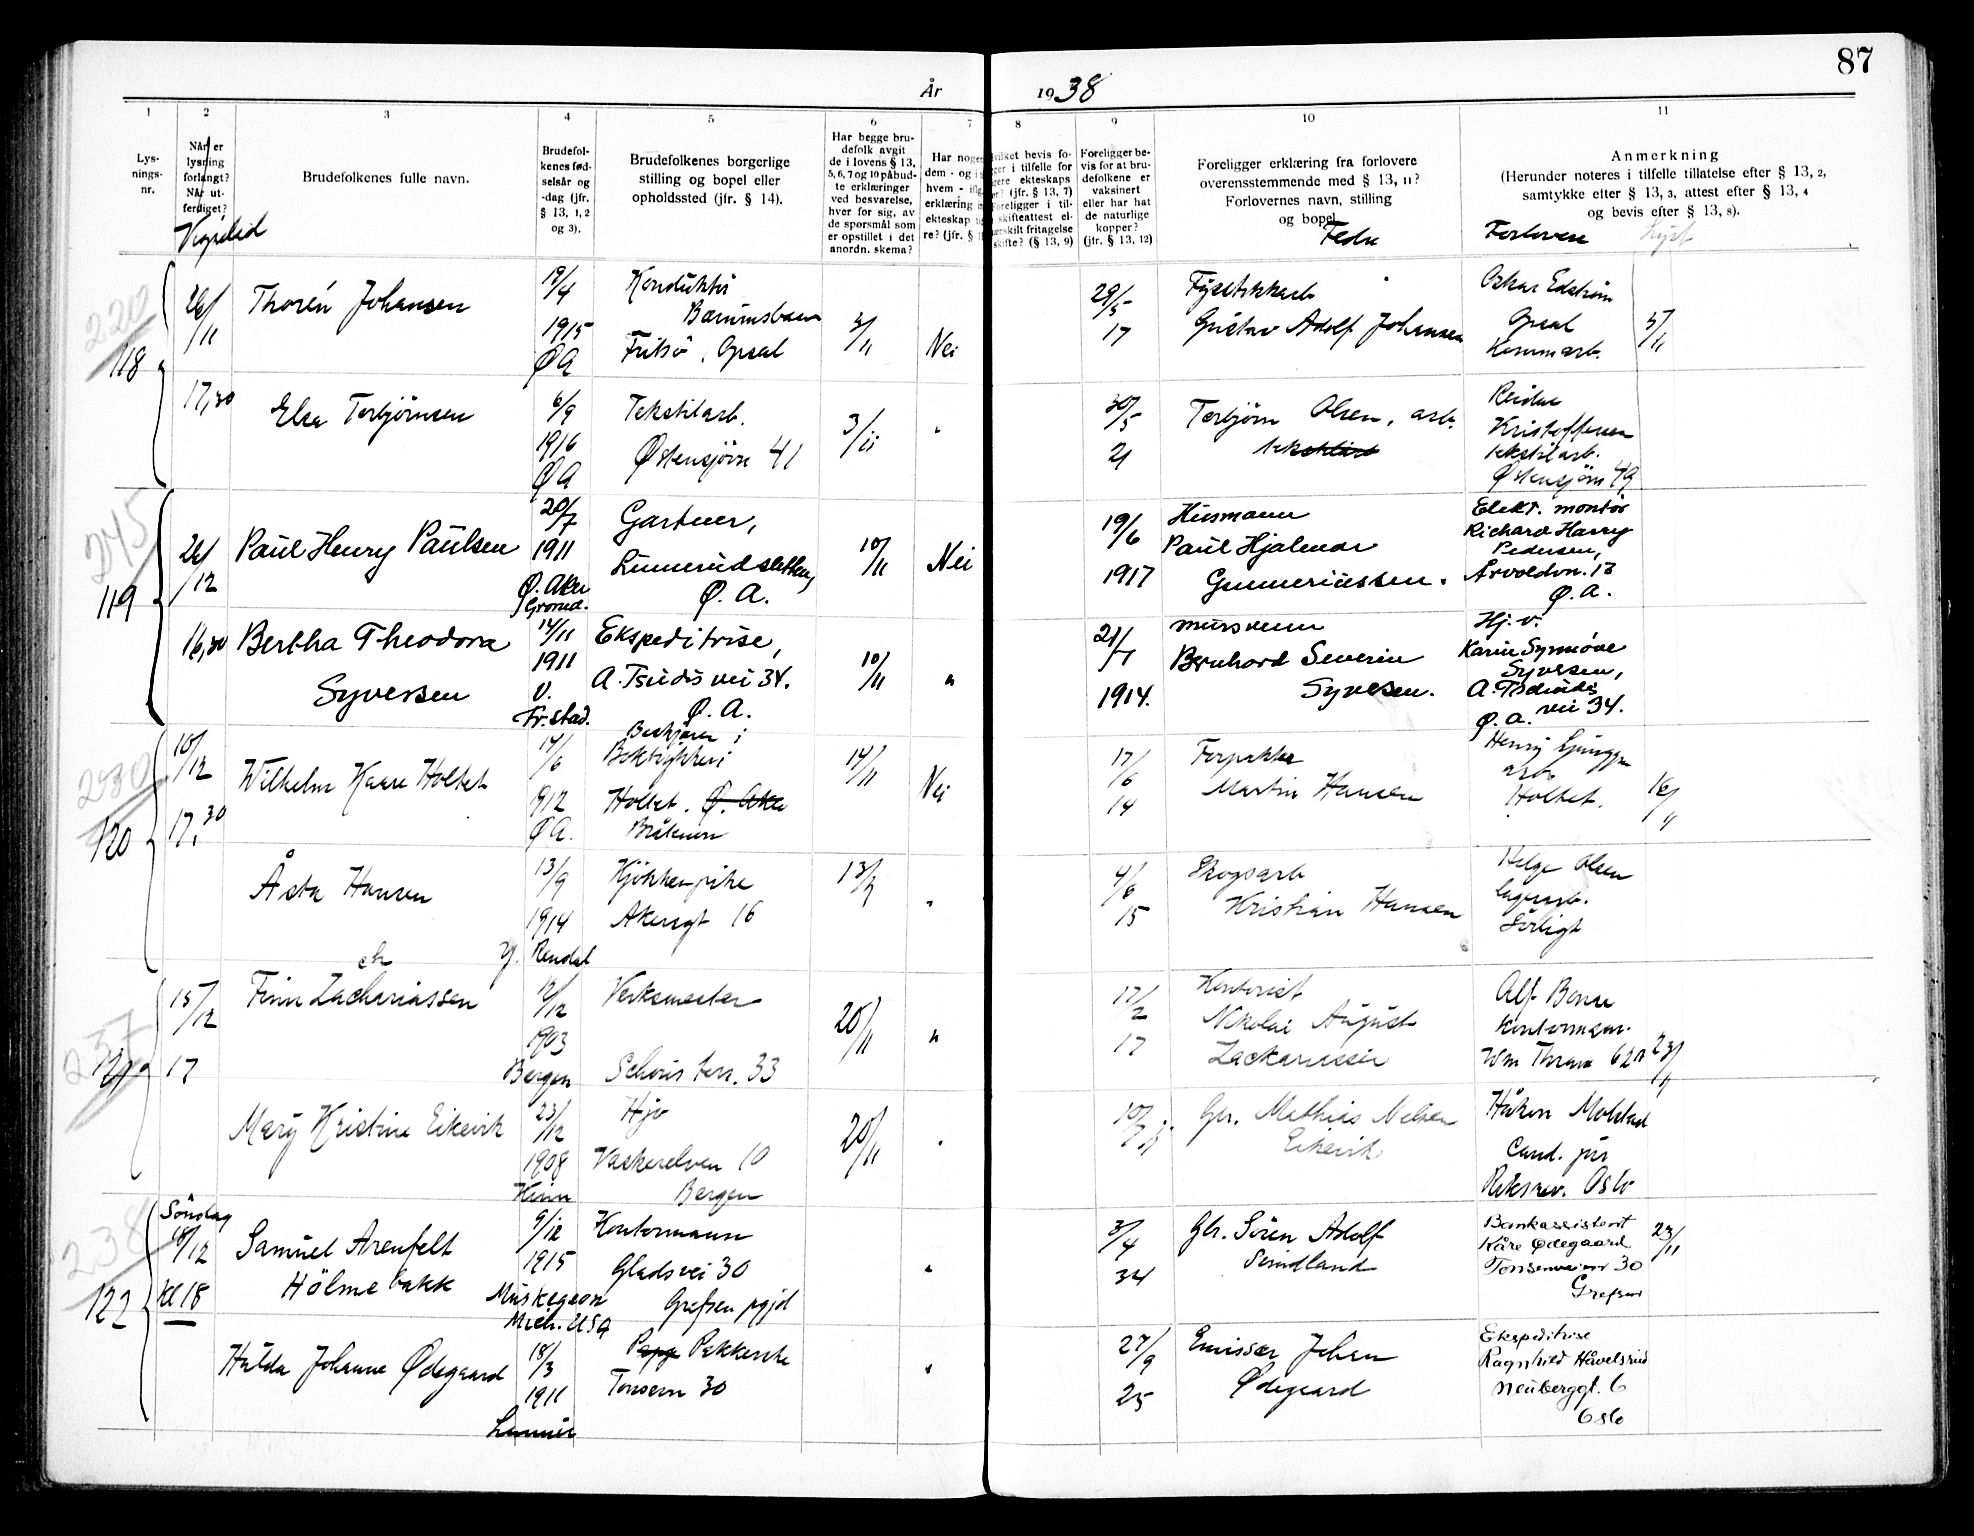 87
År 1938
1 2 3 4 5 6 7 8 9 10 11
Lysnings-nr.
Når er lysning forlangt? Når utferdiget?
Brudefolkenes fulle navn.
Brudefolkenes fødselsår og -dag (jfr. § 13, 1, 2 og 3).
Brudefolkenes borgerlige stilling og bopel eller opholdssted (jfr. § 14).
Har begge brudefolk avgit de i lovens § 13, 5, 6, 7 og 10 påbudte erklæringer ved besvarelse, hver for sig, av de spørsmål som er opstillet i det anordn. skema?
Foreligger bevis for at brudefolkene er vaksinert eller har hat de naturlige kopper? (jfr. § 13, 12)
Foreligger erklæring fra forlovere overensstemmende med § 13, 11? Forlovernes navn, stilling og bopel.
Anmerkning
(Herunder noteres i tilfelle tillatelse efter § 13, 2, samtykke efter § 13, 3, attest efter § 13, 4 og bevis efter § 13, 8).
Vigsletid
Forlovere
Lyst
220
118
26/11
17,30
Thorén Johansen
19/4
1915
ØA
Konduktør
Bærumsbanen
Opsal
3/11
Nei
29/5
17
Gustav Adolf Johansen
Oskar Edstrøm
Opsal
Kommarb.
5/11
Elsa Torbjørnsen
6/9
1916
ØA
Tekstilarb.
Østensjövn 41
3/11
"
30/5
21
Torbjørn Olsen, arb.
Reidar
Kristoffersen
tekstilarb.
Østensjövn 49
245
119
26/12
16,30
Paul Henry Paulsen
20/7
1911
Ø. Aker
Grorud.
Gartner,
Linnerudsletten,
Ø. A.
10/11
Nei
19/6
1917
Husmann
Paul Hjalmar
Gunneriussen.
Elekt. montør
Richard Harry
Pedersen,
Årvoldvn. 13
Ø. A.
Bertha Theodora
Syversen
14/11
1911
v.
Fr.stad.
Ekspeditrise,
A. Tsudis vei 34.
Ø. A.
10/11
"
21/7
1914.
mursvenn
Bernhard Severin
Syversen.
Hj. v.
Karin Synnøve
Syversen,
A. Tschudis
vei 34.
Ø. A.
230
120
10/12
17,30
Wilhelm Kaare Holtet
14/6
1912
ØA.
Boktrykkeri
Holtet. Ø. Aker
14/11
Nei
17/6
14
Martin Hansen
Henry
arb.
Holtet.
16/11
Åsta Hansen
13/9
1914
Rendal
Kjøkkenpike
Akersgt 16
4/6
15
Skogsarb
Kristian Hansen
Helge Olsen
lagerarb.
Sörligt
237
121
15/12
17
Finn Zachariassen
12/12
1903
Bergen
Verksmester
Schous terr. 33
20/11
"
17/2
17
Kontorist
Nikolai August
Zackariassen
Alf
Kontormann.
Wm Thranes 62
23/11
Mary Kristine Eikevik
23/12
1908
Kinn
Hjv
Vaskerelven 10
Bergen
20/11
Gbr. Mathias Nelsen
Eikevik
Håkon Molstad
Cand. jur
Riksrev. Oslo
238
122
Söndag
18/12
kl 18
Samuel Arenfelt
Hölmebakk
9/12
1915
Muskegeon
Mich. USA
Kontormann
Gladsvei 30
Grefsen
"
3/4
34
Gbr. Sören Adolf
Sundland
Bankassistent
Kåre Ødegaard
Tonsenveien 30
Grefsen
23/11
Hulda Johanne Ødegaard
18/3
1911
Lunner
Pakkerske
Tonsenvn 30
"
27/9
25
Emissær Johan
Ødegaard
Ekspeditrise
Ragnhild Håvelsrud
Neuberggt. 6
Oslo